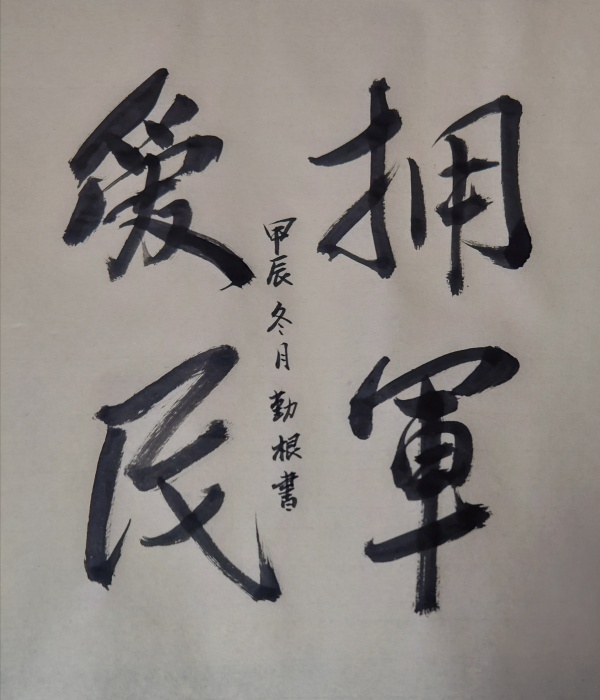 拥軍
愛民
甲辰冬月勤根書